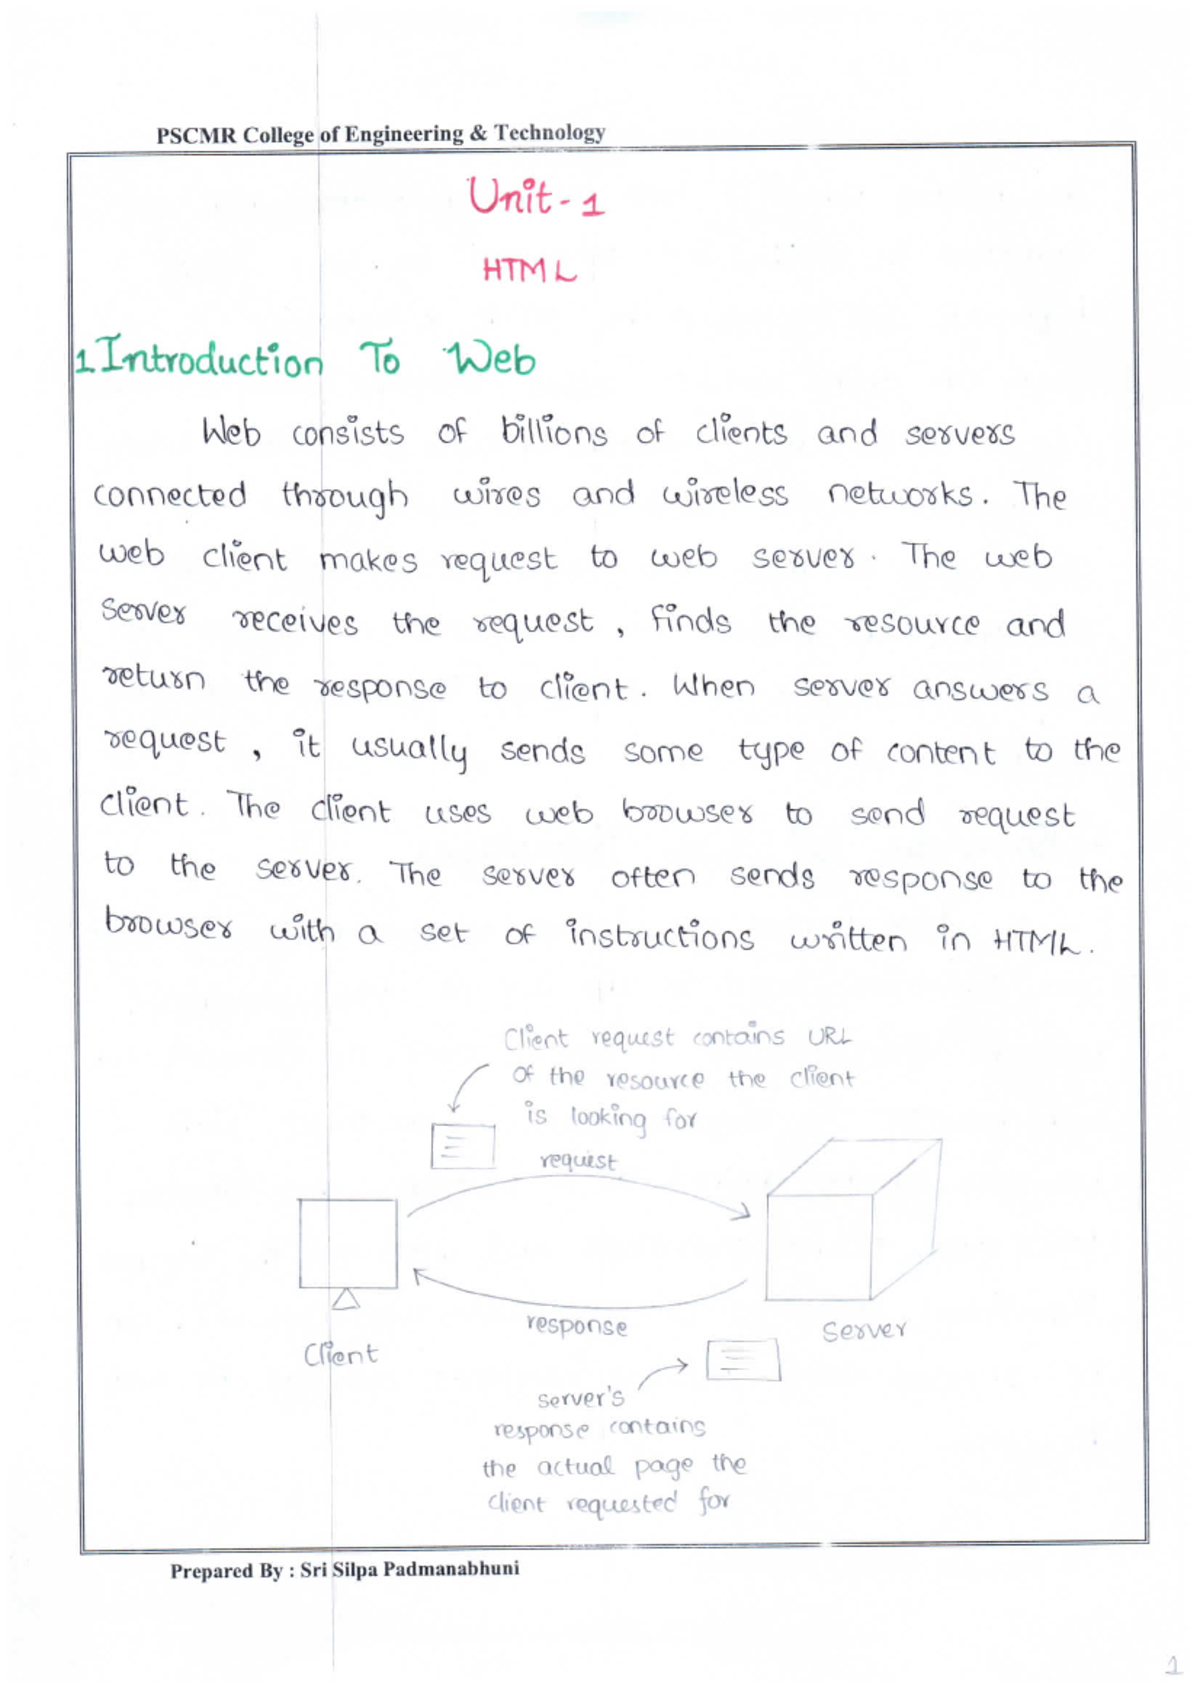 PSCMR College of Engineering & Technology
Unit-1
HTML
1.Introduction To Web
Web consists of billions of clients and servers
connected through wires and wireless networks. The
web client makes request to web server. The web
Server receives the request, finds the resource and
return the response to client. When server answers a
request, it usually sends some type of content to the
client. The client uses web browser to send request
to the server. The server often sends response to the
browser with a set of instructions written in HTML.
Client request contains URL
of the resource the client
is looking for
request
response
Server
Client
server's
response contains
the actual page the
client requested for
Prepared By : Sri Silpa Padmanabhuni
1